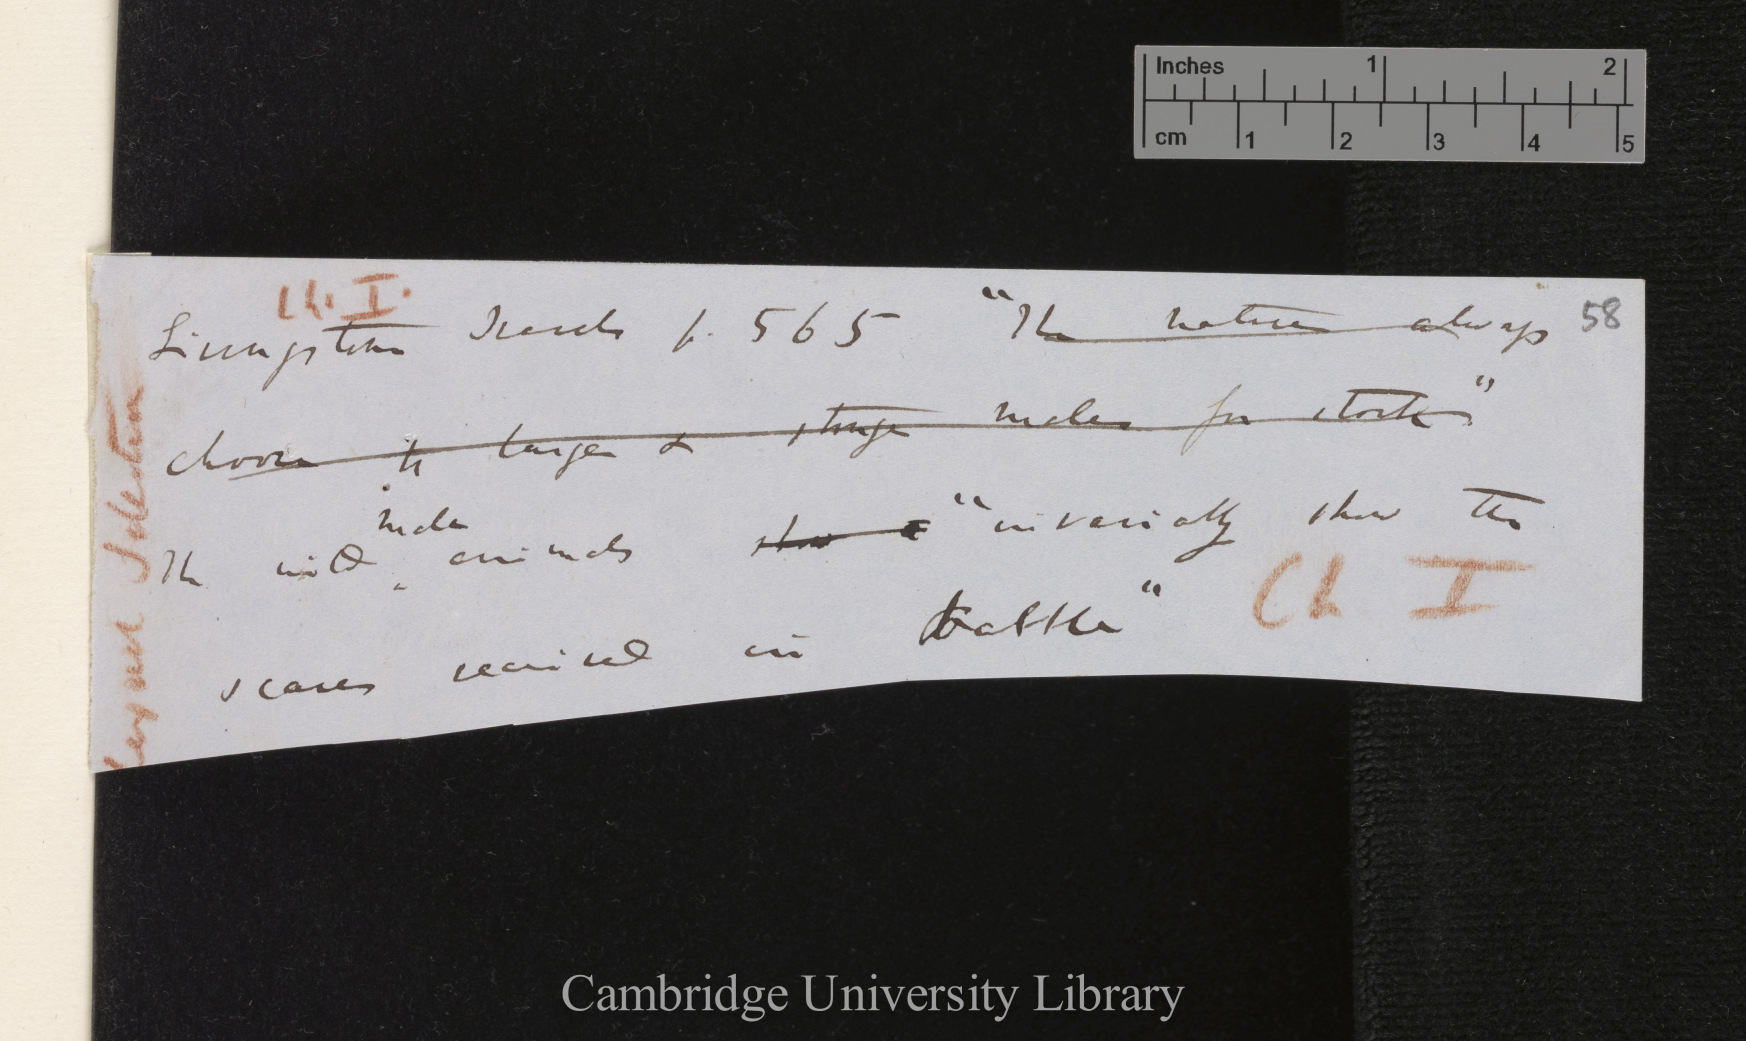 Inches 1 2
cm 1 2 3 4 5
Ch. I.
58
Livingstone Travels p. 565 "The natives always
choose the larger & stronger males for stock"
male
The wild animals show "invariably show the
scars received in battle"
Ch I
Sexual Selection
Cambridge University Library